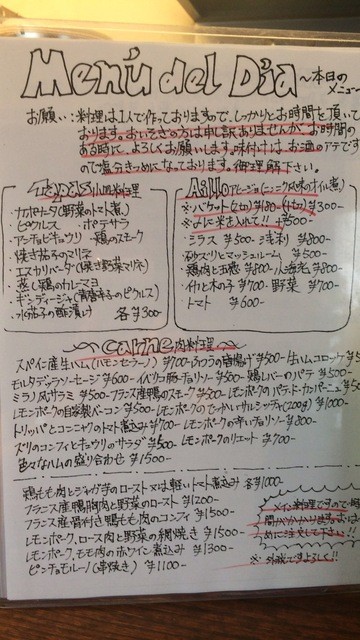 Menú del Día ～本日のメニュー
お願い：料理は1人で作っておりますので、しっかりとお時間を頂いて
おります。おいそぎの方は申し訳ありませんが、お時間の
ある時に、よろしくお願いします。味付けは、お酒のアテですの
で塩分きつめになっております。御理解下さい。
Tapas 小皿料理
・カポナータ(野菜のトマト煮)
・ピクルス ・ポテサラ
・アンチョビキュウリ ・鶏のスモーク
・焼き茄子のマリネ
・エスカリバータ(焼き野菜マリネ)
・蒸し鶏のカレーマヨ
・ギンディージャ(青唐辛子のピクルス)
・水茄子の酢漬け 各¥300-
Aillo アヒージョ(ニンニク風味のオイル煮)
※バゲット(2切)¥180-(4切)¥300-
※〆に米を入れて!! ¥500-
・シラス ¥500- ・ ¥800-
・砂ズリとマッシュルーム ¥500-
・鶏肉と玉葱 ¥800- ・小海老 ¥800-
・イカと木の子 ¥700- ・野菜 ¥700-
・トマト ¥600-
～Carne 肉料理～
スペイン産生ハム(ハモンセラーノ) ¥700- ¥500- 生ハムコロッケ
モルタデッラソーセージ ¥600- イベリコ豚チョリソー ¥500- 鶏レバーのパテ
ミラノ風サラミ ¥500- フランス産鴨のスモーク ¥500- レモンポークのパテ・ド・カンパーニュ
レモンポークの自家製ベーコン ¥500- レモンポークのでっかいサルシッチャ(200g) ¥1000-
トリッパとコンニャクのトマト煮込み ¥700- レモンポークの辛いチョリソー ¥800-
ズリのコンフィとキュウリのサラダ ¥500- レモンポークのリエット ¥700-
色々なハムの盛り合わせ ¥1500-
鶏もも肉とジャガ芋のロースト又は軽いトマト煮込み 各¥1000-
フランス産鴨胸肉と野菜のロースト ¥1200-
フランス産骨付き鴨もも肉のコンフィ ¥1500-
レモンポークロース肉と野菜の網焼き ¥1500-
レモンポーク、モモ肉の赤ワイン煮込み ¥1300-
ピンチョモルーノ(串焼き) ¥1100-
※メイン料理ですので
間がかかります。
めに注文して下さい!!